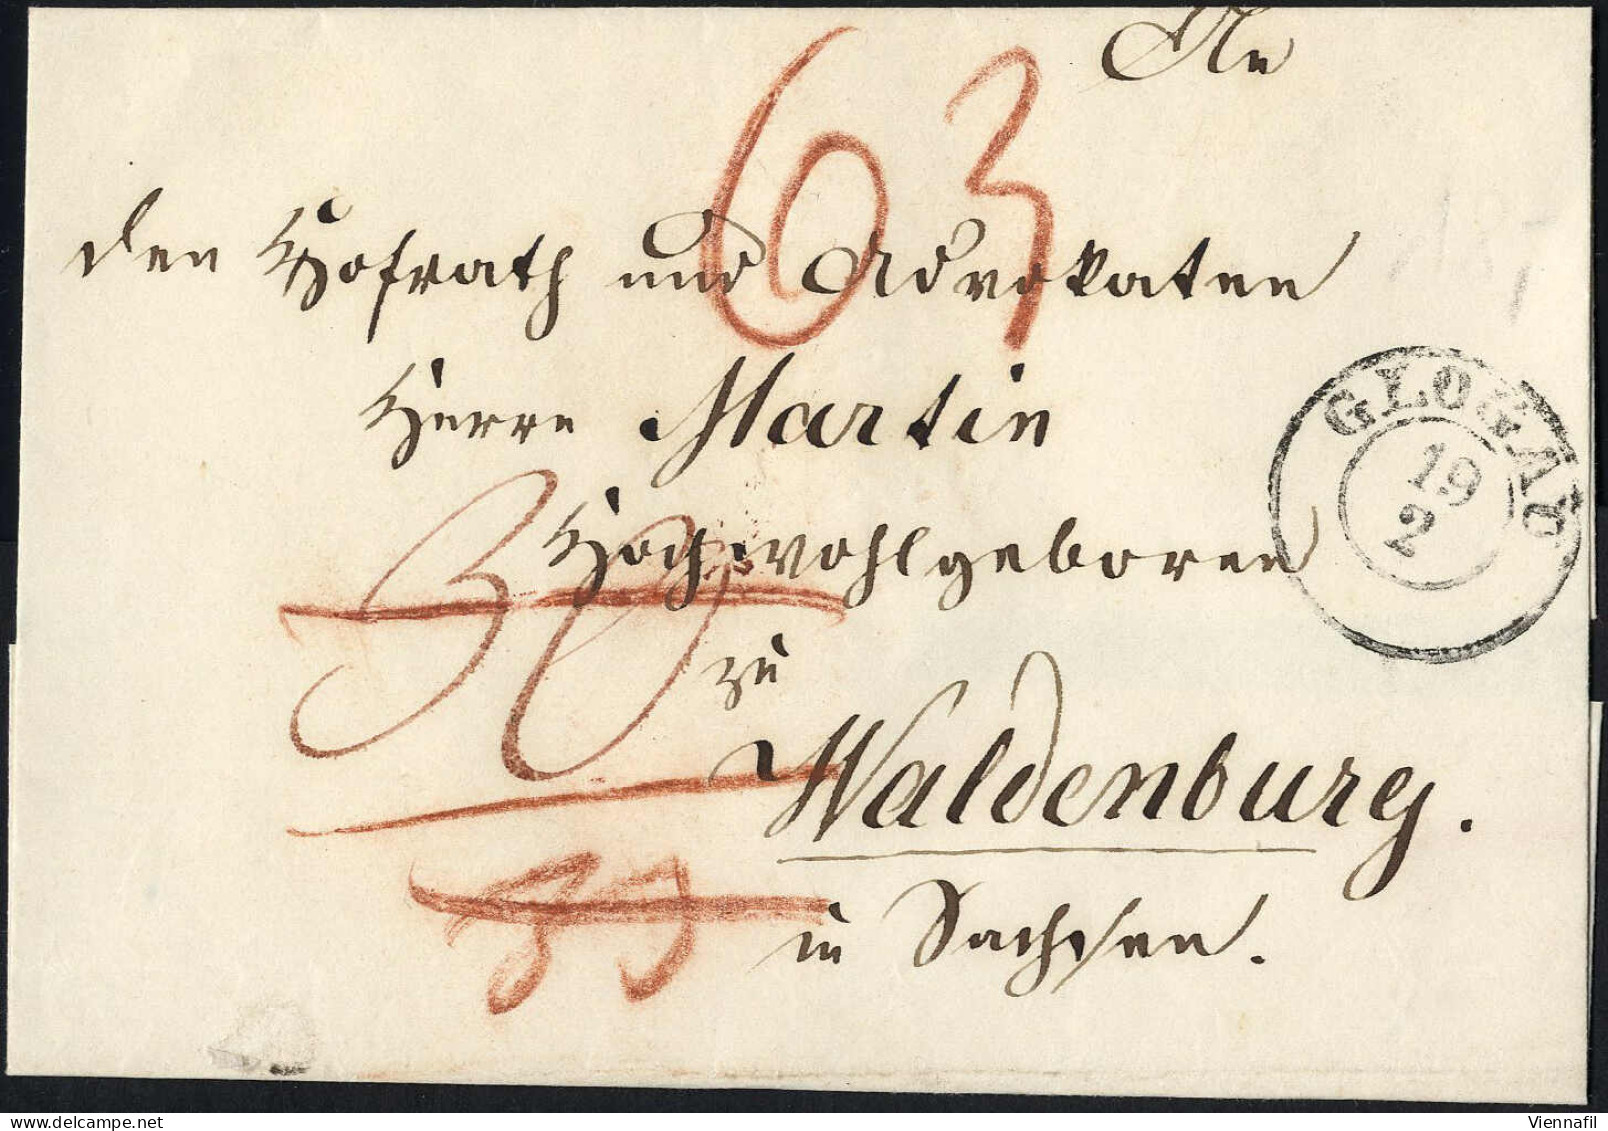 An
63
den Hofrath und Advokaten
Herrn Martin
GLOGAU
19
2
Hochwohlgeboren
30
zu
Waldenburg.
33
in Sachsen.
Viennafil